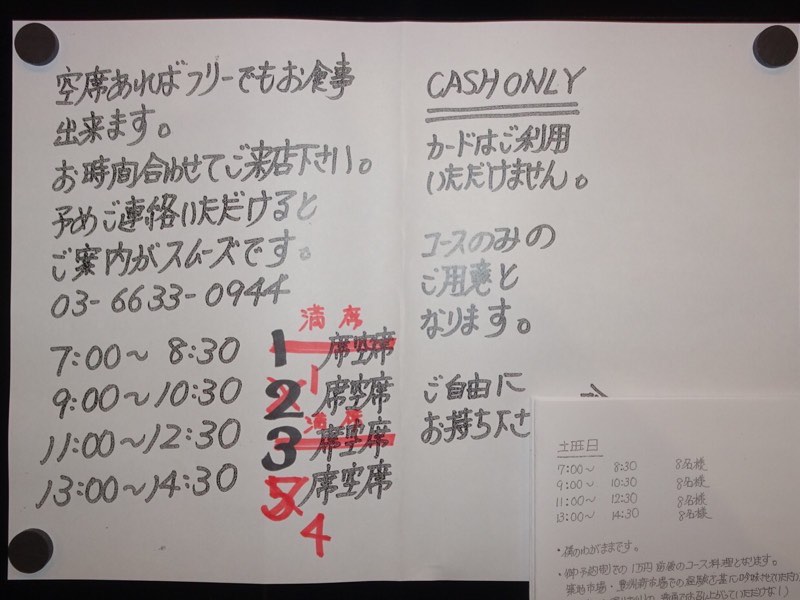 空席あればフリーでもお食事
出来ます。
お時間合わせてご来店下さい。
予めご連絡いただけると
ご案内がスムーズです。
03-6633-0944
満席
7:00〜 8:30 1席空席
1
9:00〜10:30 2席空席
満席
11:00〜12:30 3席空席
13:00〜14:30 5席空席
4
CASH ONLY
カードはご利用
いただけません。
コースのみの
ご用意と
なります。
ご自由に
お持ち下さ
土日
7:00〜 8:30 8名様
9:00〜 10:30 8名様
11:00〜 12:30 8名様
13:00〜 14:30 8名様
・僕のわがままです。
・御予約制での1万円前後のコース料理となります。
築地市場・豊洲新市場での経験を基に吟味させていた